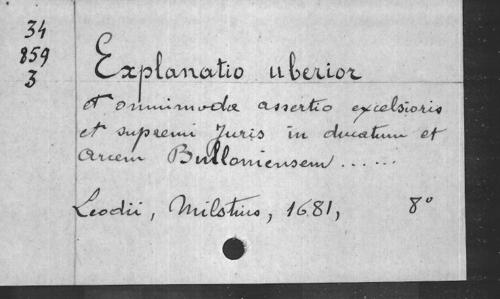 34
859
3
Explanatio uberior
et omnimoda assertio excelsioris
et supremi Juris in ducatum et
arcem Bulloniensem ......
Leodii, Milstius, 1681, 8°